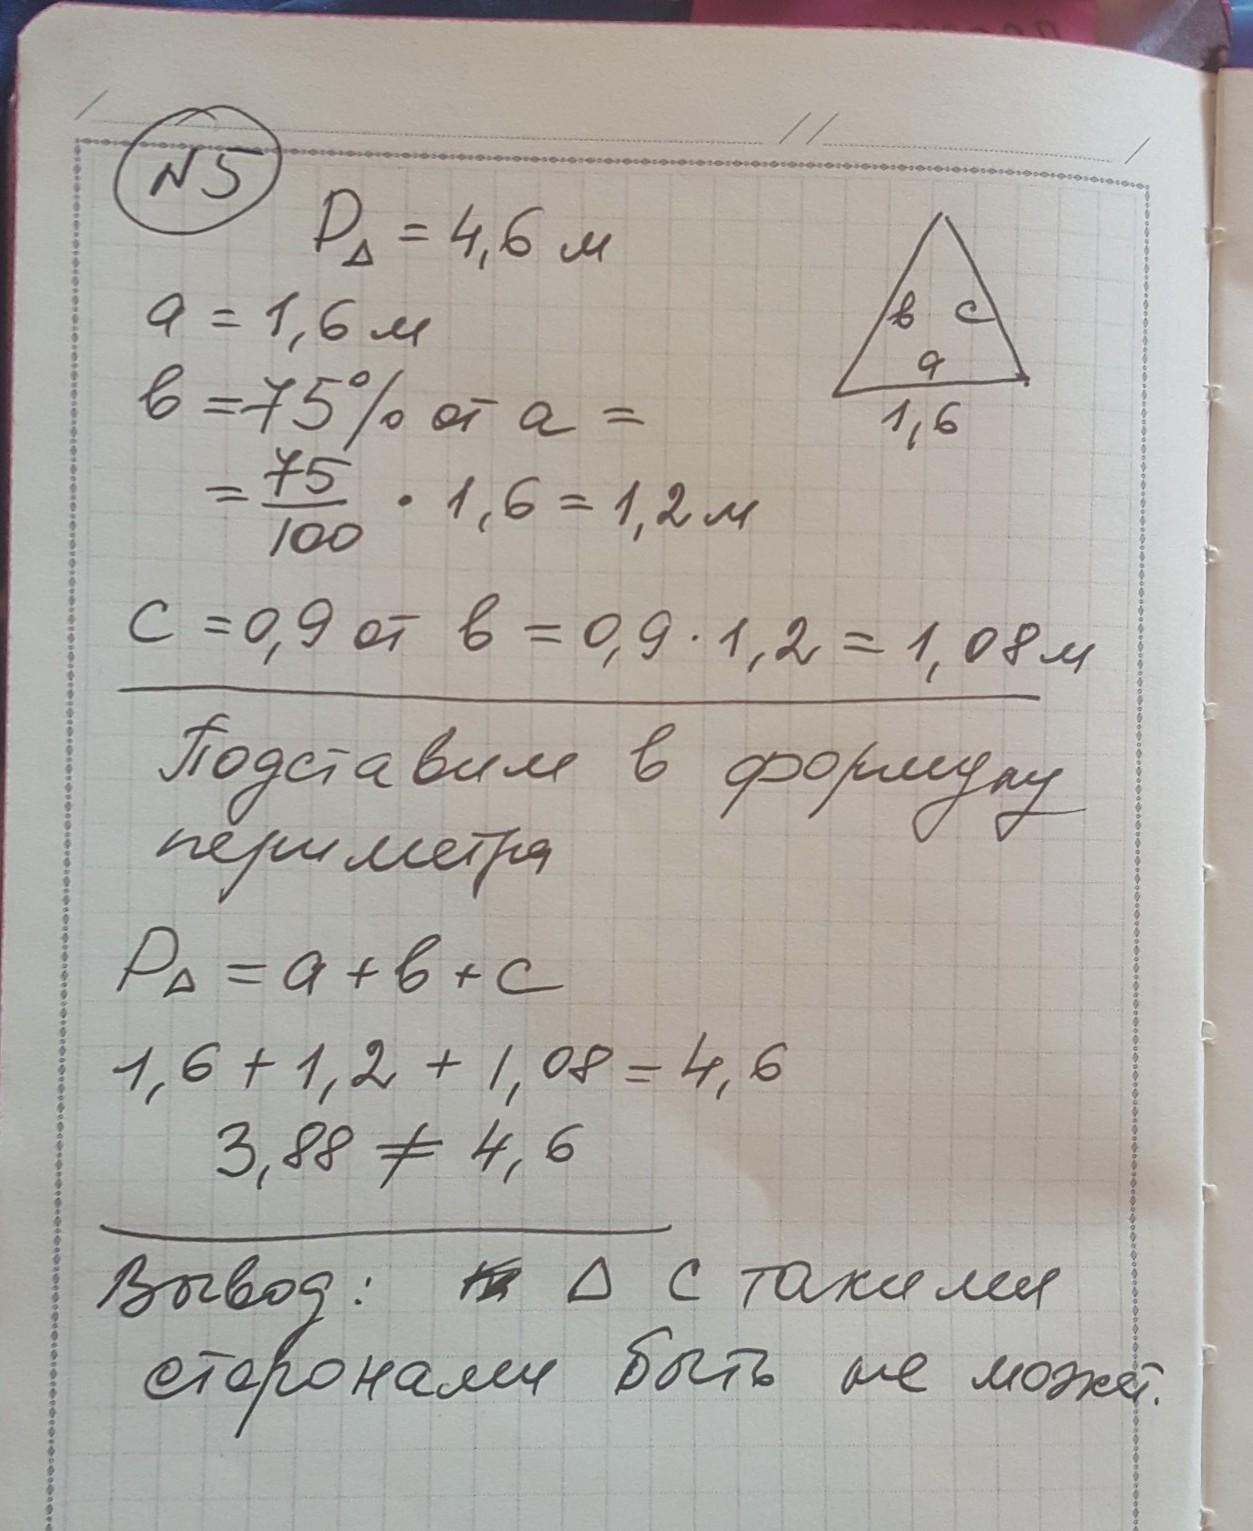 N5
P△ = 4,6 м
a = 1,6 м
в = 75% от a =
= 75/100 · 1,6 = 1,2 м
в с
a
1,6
c = 0,9 от в = 0,9 · 1,2 = 1,08 м
Подставим в формулу
периметра
P△ = a + в + c
1,6 + 1,2 + 1,08 = 4,6
3,88 ≠ 4,6
Вывод: △ с такими
сторонами быть не может.